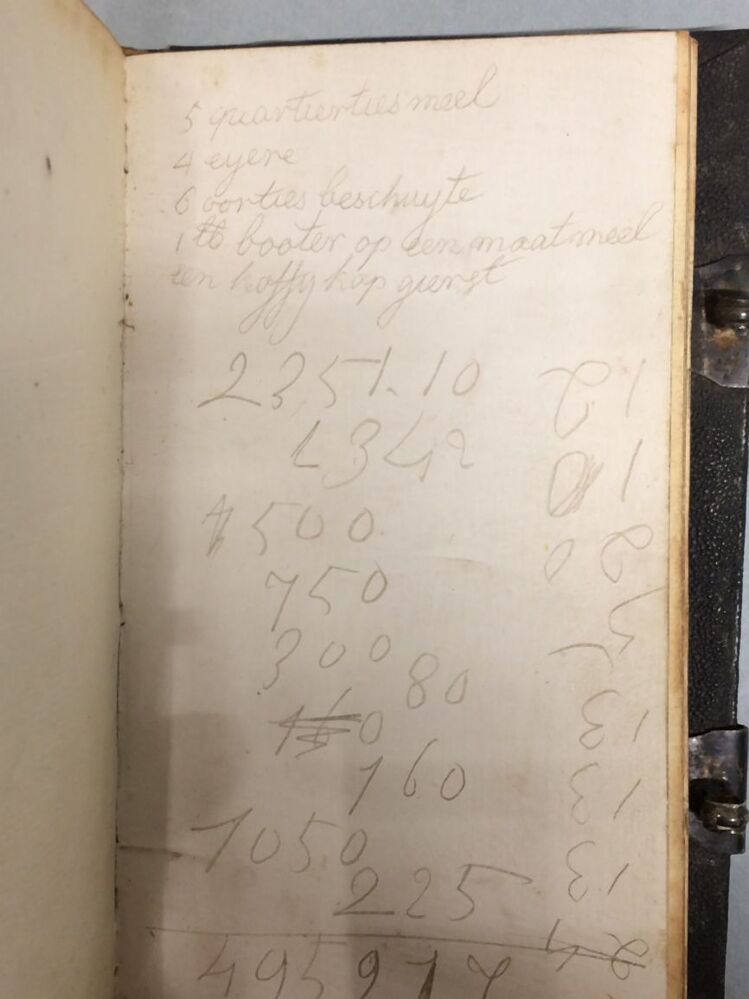 5 quartierties meel
4 eyere
6 oorties beschuyte
1 ℔ booter op een maat meel
een koffy kop gierst
2351.10
1342
1500
750
300
80
160
1050
225
12
10
20
13
13
13
24